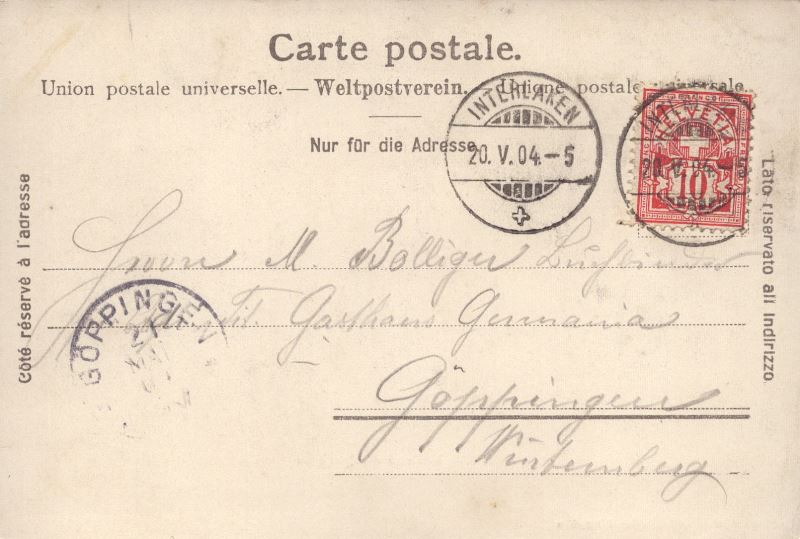 Carte postale.
Union postale universelle. — Weltpostverein. — Unione postale universale.
Nur für die Adresse
INTERLAKEN
20. V. 04. – 5
FRANCO
HELVETIA
10
20. V. 04. – 5
Côté réservé à l'adresse
Lato riservato all indirizzo
Herrn M. Bolliger Buchbinder
Tit. Gasthaus Germania
Göppingen
Würtemberg
GÖPPINGEN